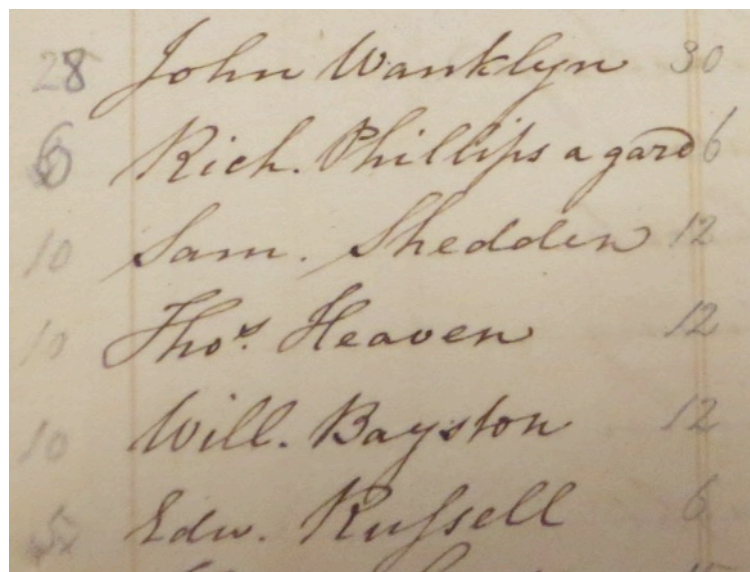 28 John Wanklyn 30
6 Rich. Phillips a gard 6
10 Sam. Shedden 12
10 Thos. Heaven 12
10 Will. Bayston 12
5 Edw. Russell 6